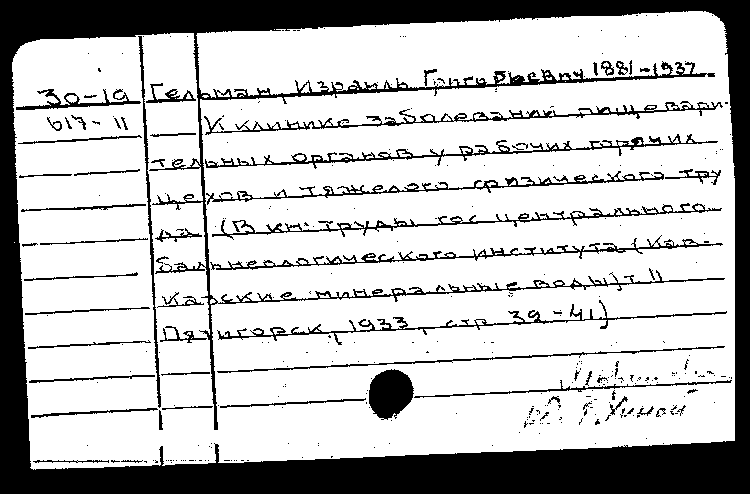 30-19 Гельман, Израиль Григорьевич 1881-1937
617-11 К клинике заболеваний пищевари-
тельных органов у рабочих горячих
цехов и тяжелого физического тру
да (В кн: Труды гос центрального
бальнеологического института (Кав-
казские минеральные воды) т. II
Пятигорск, 1933, стр 39-41)